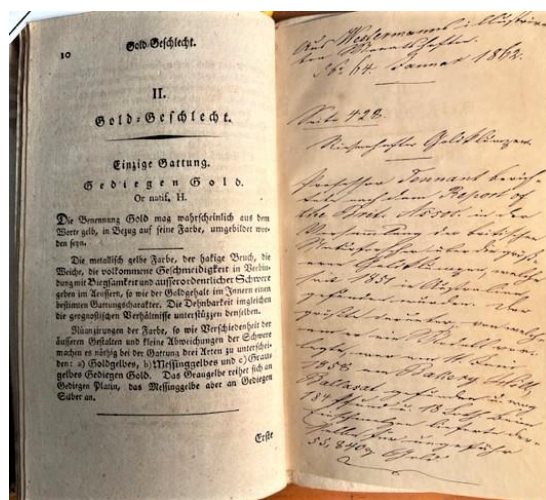 10
Gold-Geschlecht.
II.
Gold-Geschlecht.
Einzige Gattung.
Gediegen Gold.
Or natif, H.
Die Benennung Gold mag wahrscheinlich aus dem
Worte gelb, in Bezug auf seine Farbe, umgebildet wor-
den seyn.
Die metallisch gelbe Farbe, der hakige Bruch, die
Weiche, die vollkommene Geschmeidigkeit in Verbin-
dung mit Biegsamkeit und ausserordentlicher Schwere
geben im Aeussern, so wie der Goldgehalt im Innern einen
bestimten Gattungscharakter. Die Dehnbarkeit imgleichen
die geognostischen Verhältnisse unterstüzzen denselben.
Nüanzirungen der Farbe, so wie Verschiedenheit der
äusseren Gestalten und kleine Abweichungen der Schwere
machen es nöthig bei der Gattung drei Arten zu unterschei-
den: a) Goldgelbes, b) Messinggelbes und c) Grau-
gelbes Gediegen Gold. Das Graugelbe reihet sich an
Gediegen Platin, das Messinggelbe aber an Gediegen
Silber an.
Erste
Aus Westermanns illustrir-
ten Monatsheften
No. 64. Januar 1862.
Seite 428.
Goldklumpen
Professor Tennant berich-
tete nach dem Report of
the Brit. Assoc. in der
Versammlung der britischen
Naturforscher über die größe-
ren Goldklumpen, welche
seit 1851
gefunden wurden. Der
größte darunter
1858
Ballarat gefunden
184 Pfund u. 18 Loth
55,840